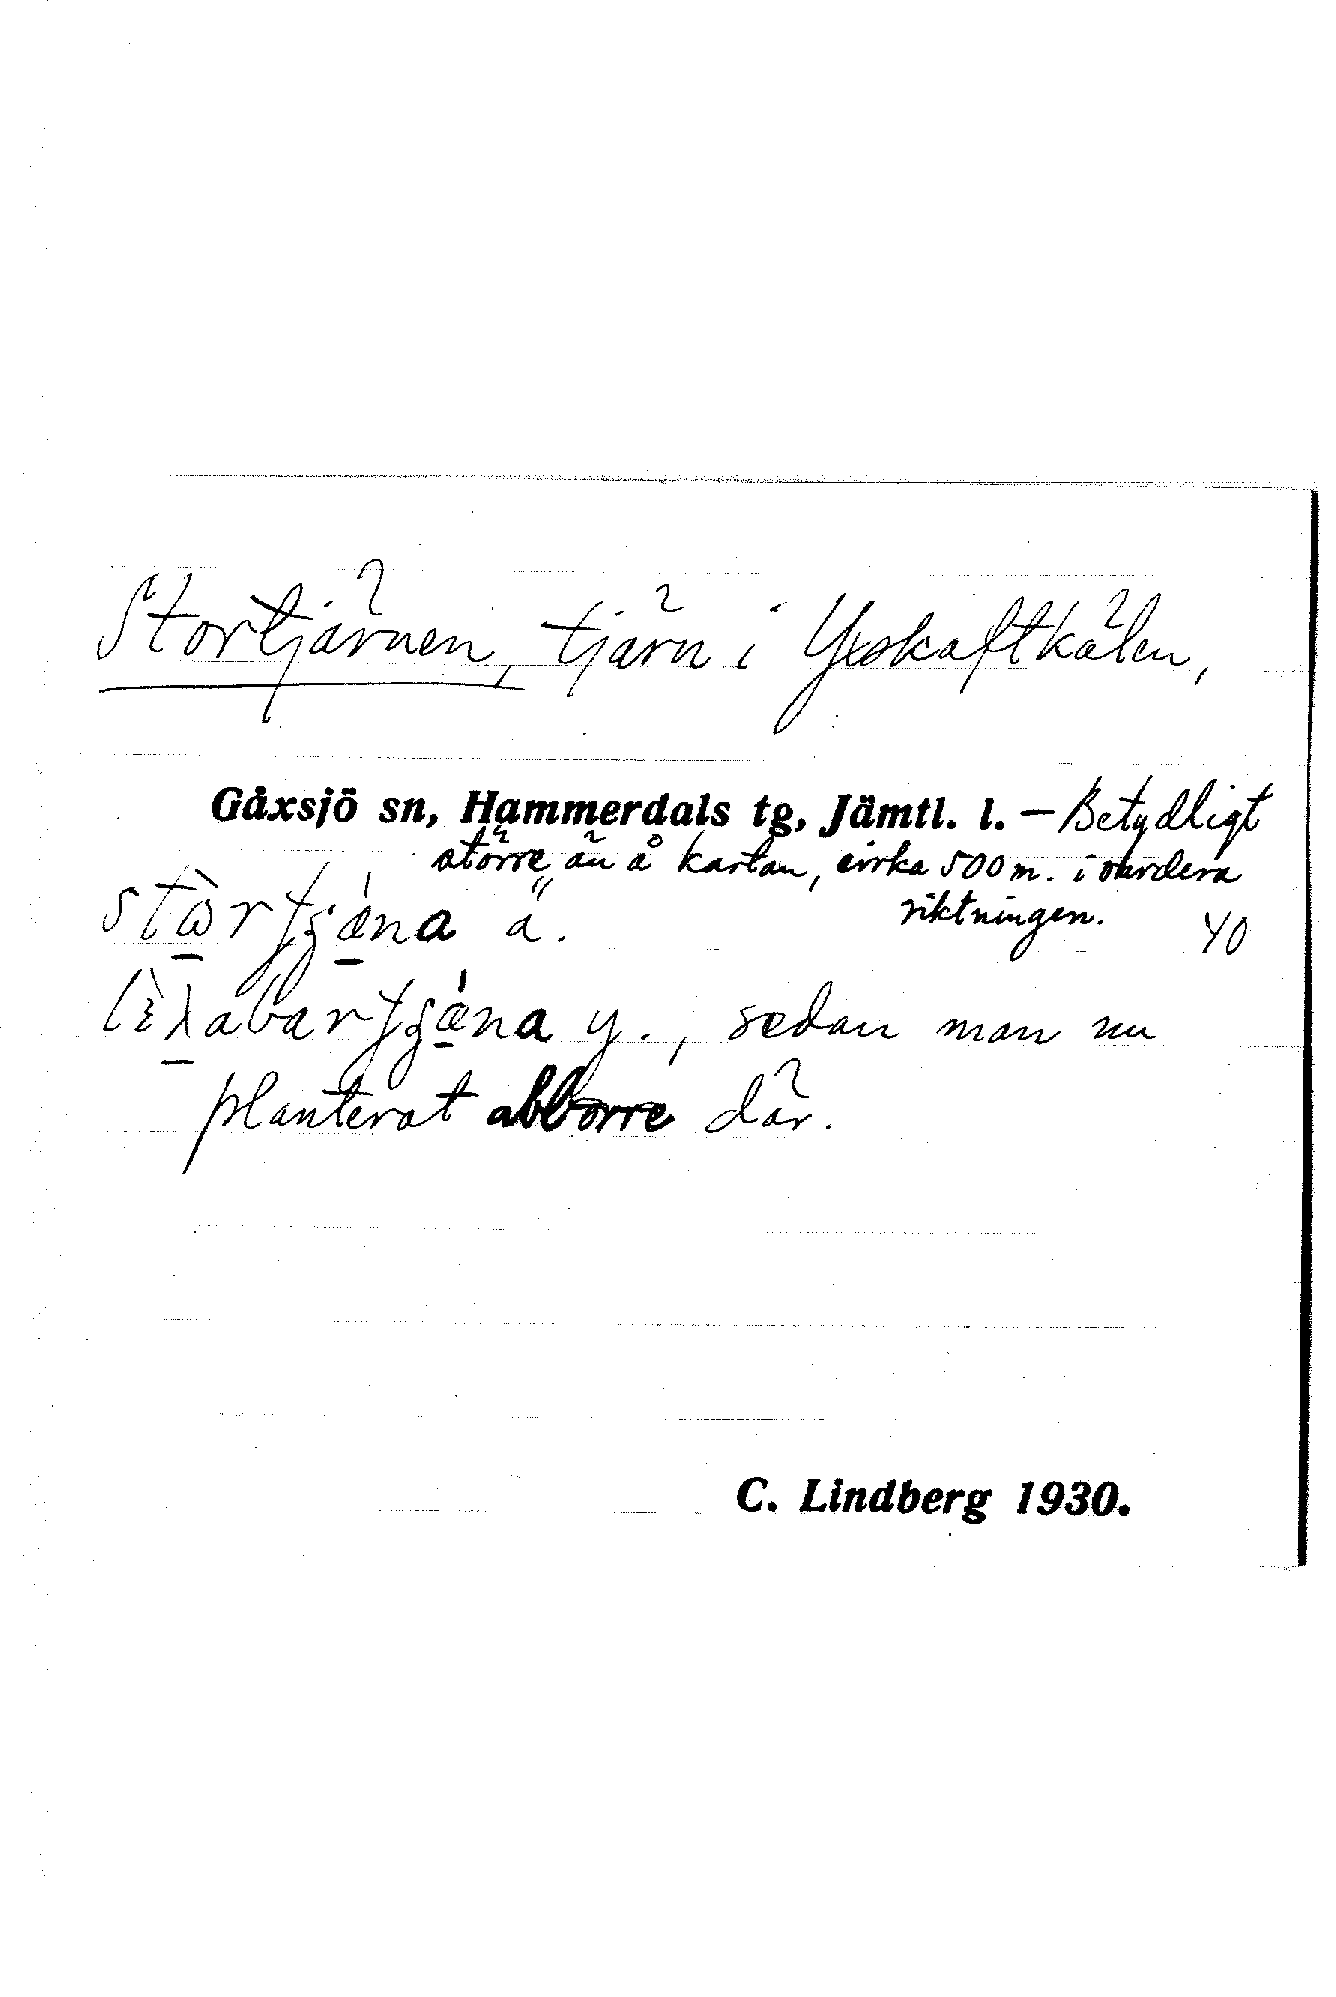 Stortjärnen, tjärn i Yxskaftkälen,
Gåxsjö sn, Hammerdals tg, Jämtl. l. – Betydligt
större än å kartan, cirka 500 m. i vardera
riktningen. 40
ä.
y., sedan man nu
planterat abborre där.
C. Lindberg 1930.